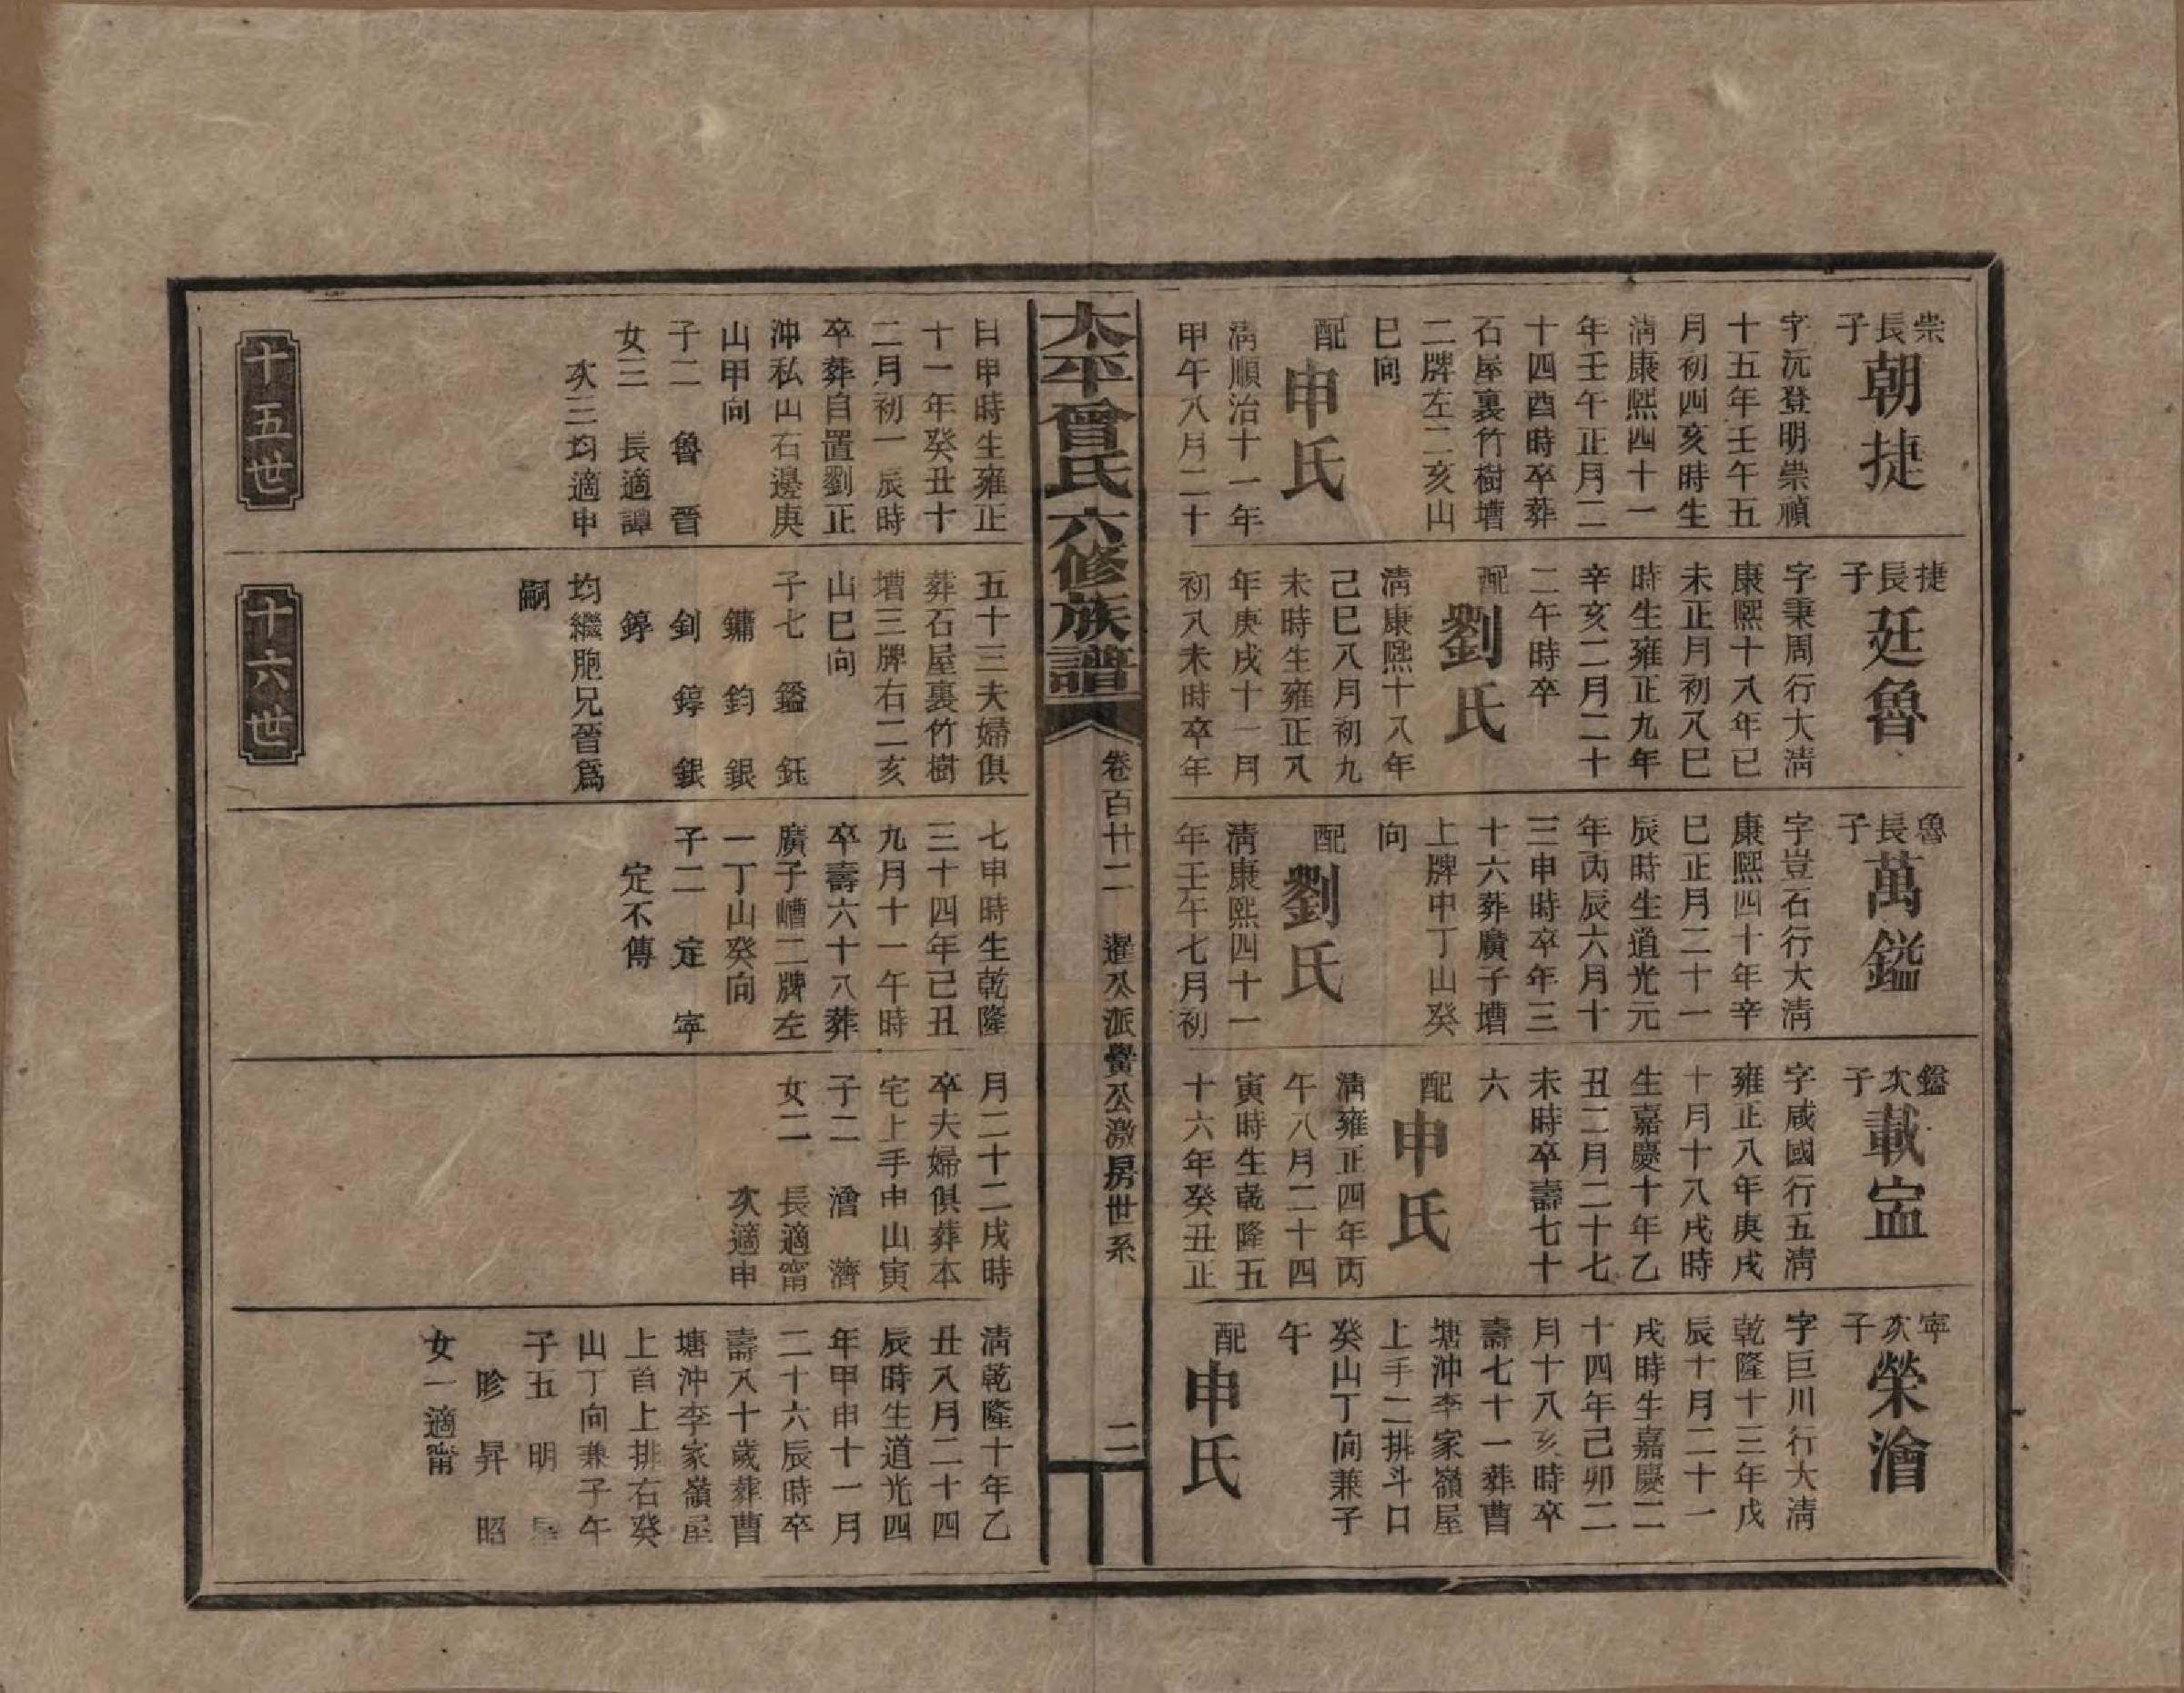 崇長子
朝捷
字沅登明崇禎
十五年壬午五
月初四亥時生
淸康熙四十一
年壬午正月二
十四酉時卒葬
石屋裏竹樹塘
二牌左二亥山
巳向
配
申氏
淸順治十一年
甲午八月二十
捷長子
廷魯
字秉周行大淸
康熙十八年己
未正月初八巳
時生雍正九年
辛亥二月二十
二午時卒
配
劉氏
淸康熙十八年
己巳八月初九
未時生雍正八
年庚戌十一月
初八未時卒年
魯長子
萬鎰
字豈石行大淸
康熙四十年辛
巳正月二十一
辰時生道光元
年丙辰六月十
三申時卒年三
十六葬廣子塘
上牌中丁山癸
向
配
劉氏
淸康熙四十一
年壬午七月初
鎰次子
載寍
字咸國行五淸
雍正八年庚戌
十月十八戌時
生嘉慶十年乙
丑二月二十七
未時卒壽七十
六
配
申氏
淸雍正四年丙
午八月二十四
寅時生乾隆五
十六年癸丑正
寍次子
榮澮
字巨川行大淸
乾隆十三年戊
辰十月二十一
戌時生嘉慶二
十四年己卯二
月十八亥時卒
壽七十一葬曹
塘沖李家嶺屋
上手二排斗口
癸山丁向兼子
午
配
申氏
太平曾氏六修族譜
卷百廿二
暹公派黌公激房世系
二
日申時生雍正
十一年癸丑十
二月初一辰時
卒葬自置劉正
沖私山石邊庚
山甲向
子二 魯 晉
女三 長適譚
次三均適申
五十三夫婦俱
葬石屋裏竹樹
塘三牌右二亥
山巳向
子七 鎰 鈺
鏞 鈞 銀
釗 錞 銀
錞
均繼胞兄晉爲
嗣
七申時生乾隆
三十四年己丑
九月十一午時
卒壽六十八葬
廣子嶆二牌左
一丁山癸向
子二 定 寍
定不傳
月二十二戌時
卒夫婦俱葬本
宅上手申山寅
子二 澮 濟
女二 長適甯
次適申
淸乾隆十年乙
丑八月二十四
辰時生道光四
年甲申十一月
二十六辰時卒
壽八十歲葬曹
塘沖李家嶺屋
上首上排右癸
山丁向兼子午
子五 明
昣 昇 昭
女一適甯
十五世
十六世